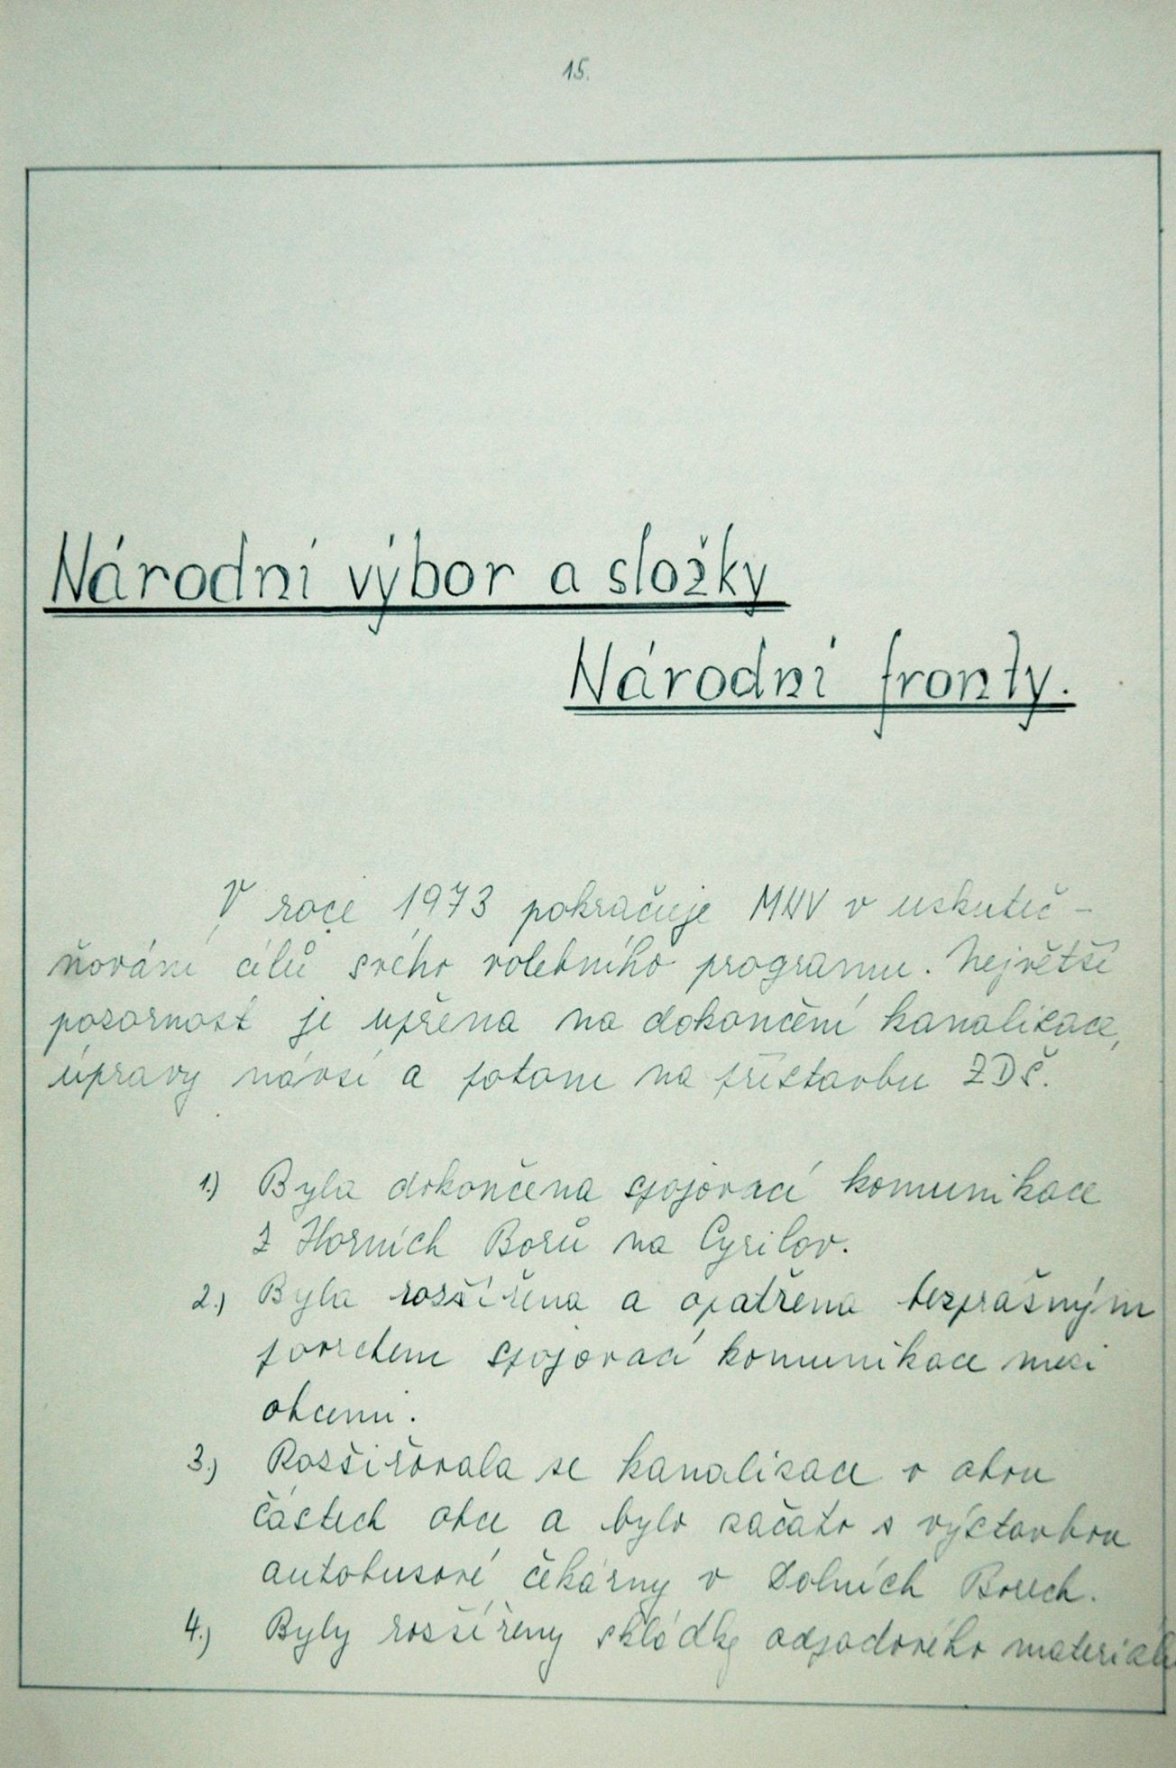 15.
Národní výbor a složky
Národní fronty.
V roce 1973 pokračuje MNV v uskuteč-
ňování cílů svého volebního programu. Největší
pozornost je upřena na dokončení kanalizace,
úpravy návsí a potom na přístavbu ZDŠ.
1.) Byla dokončena spojovací komunikace
z Horních Borů na Cyrilov.
2.) Byla rozšířena a opatřena bezprašným
povrchem spojovací komunikace mezi
obcemi.
3.) Rozšiřovala se kanalizace v obou
částech obce a bylo začato s výstavbou
autobusové čekárny v Dolních Borech.
4.) Byly rozšířeny skládky odpadového materiálu